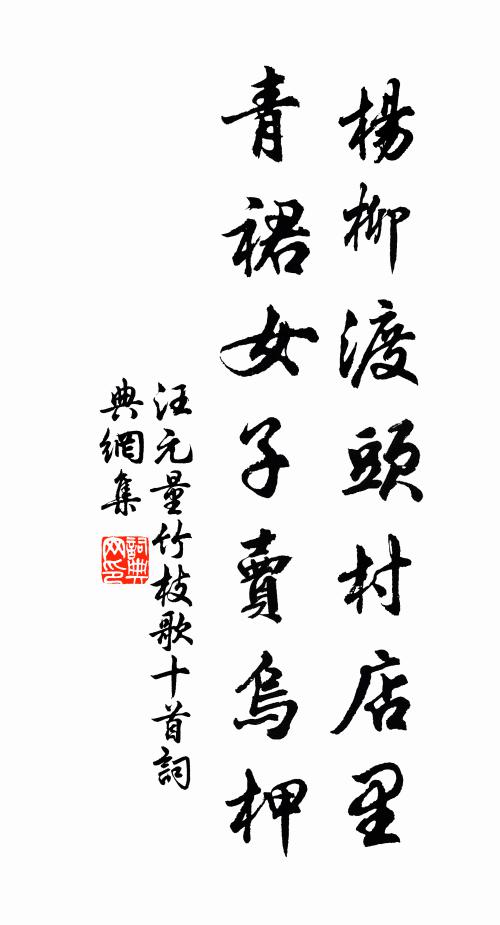 楊柳渡頭村店里
青裙女子賣烏柙
汪元量竹枝歌十首詞
典網集
詞典
网印